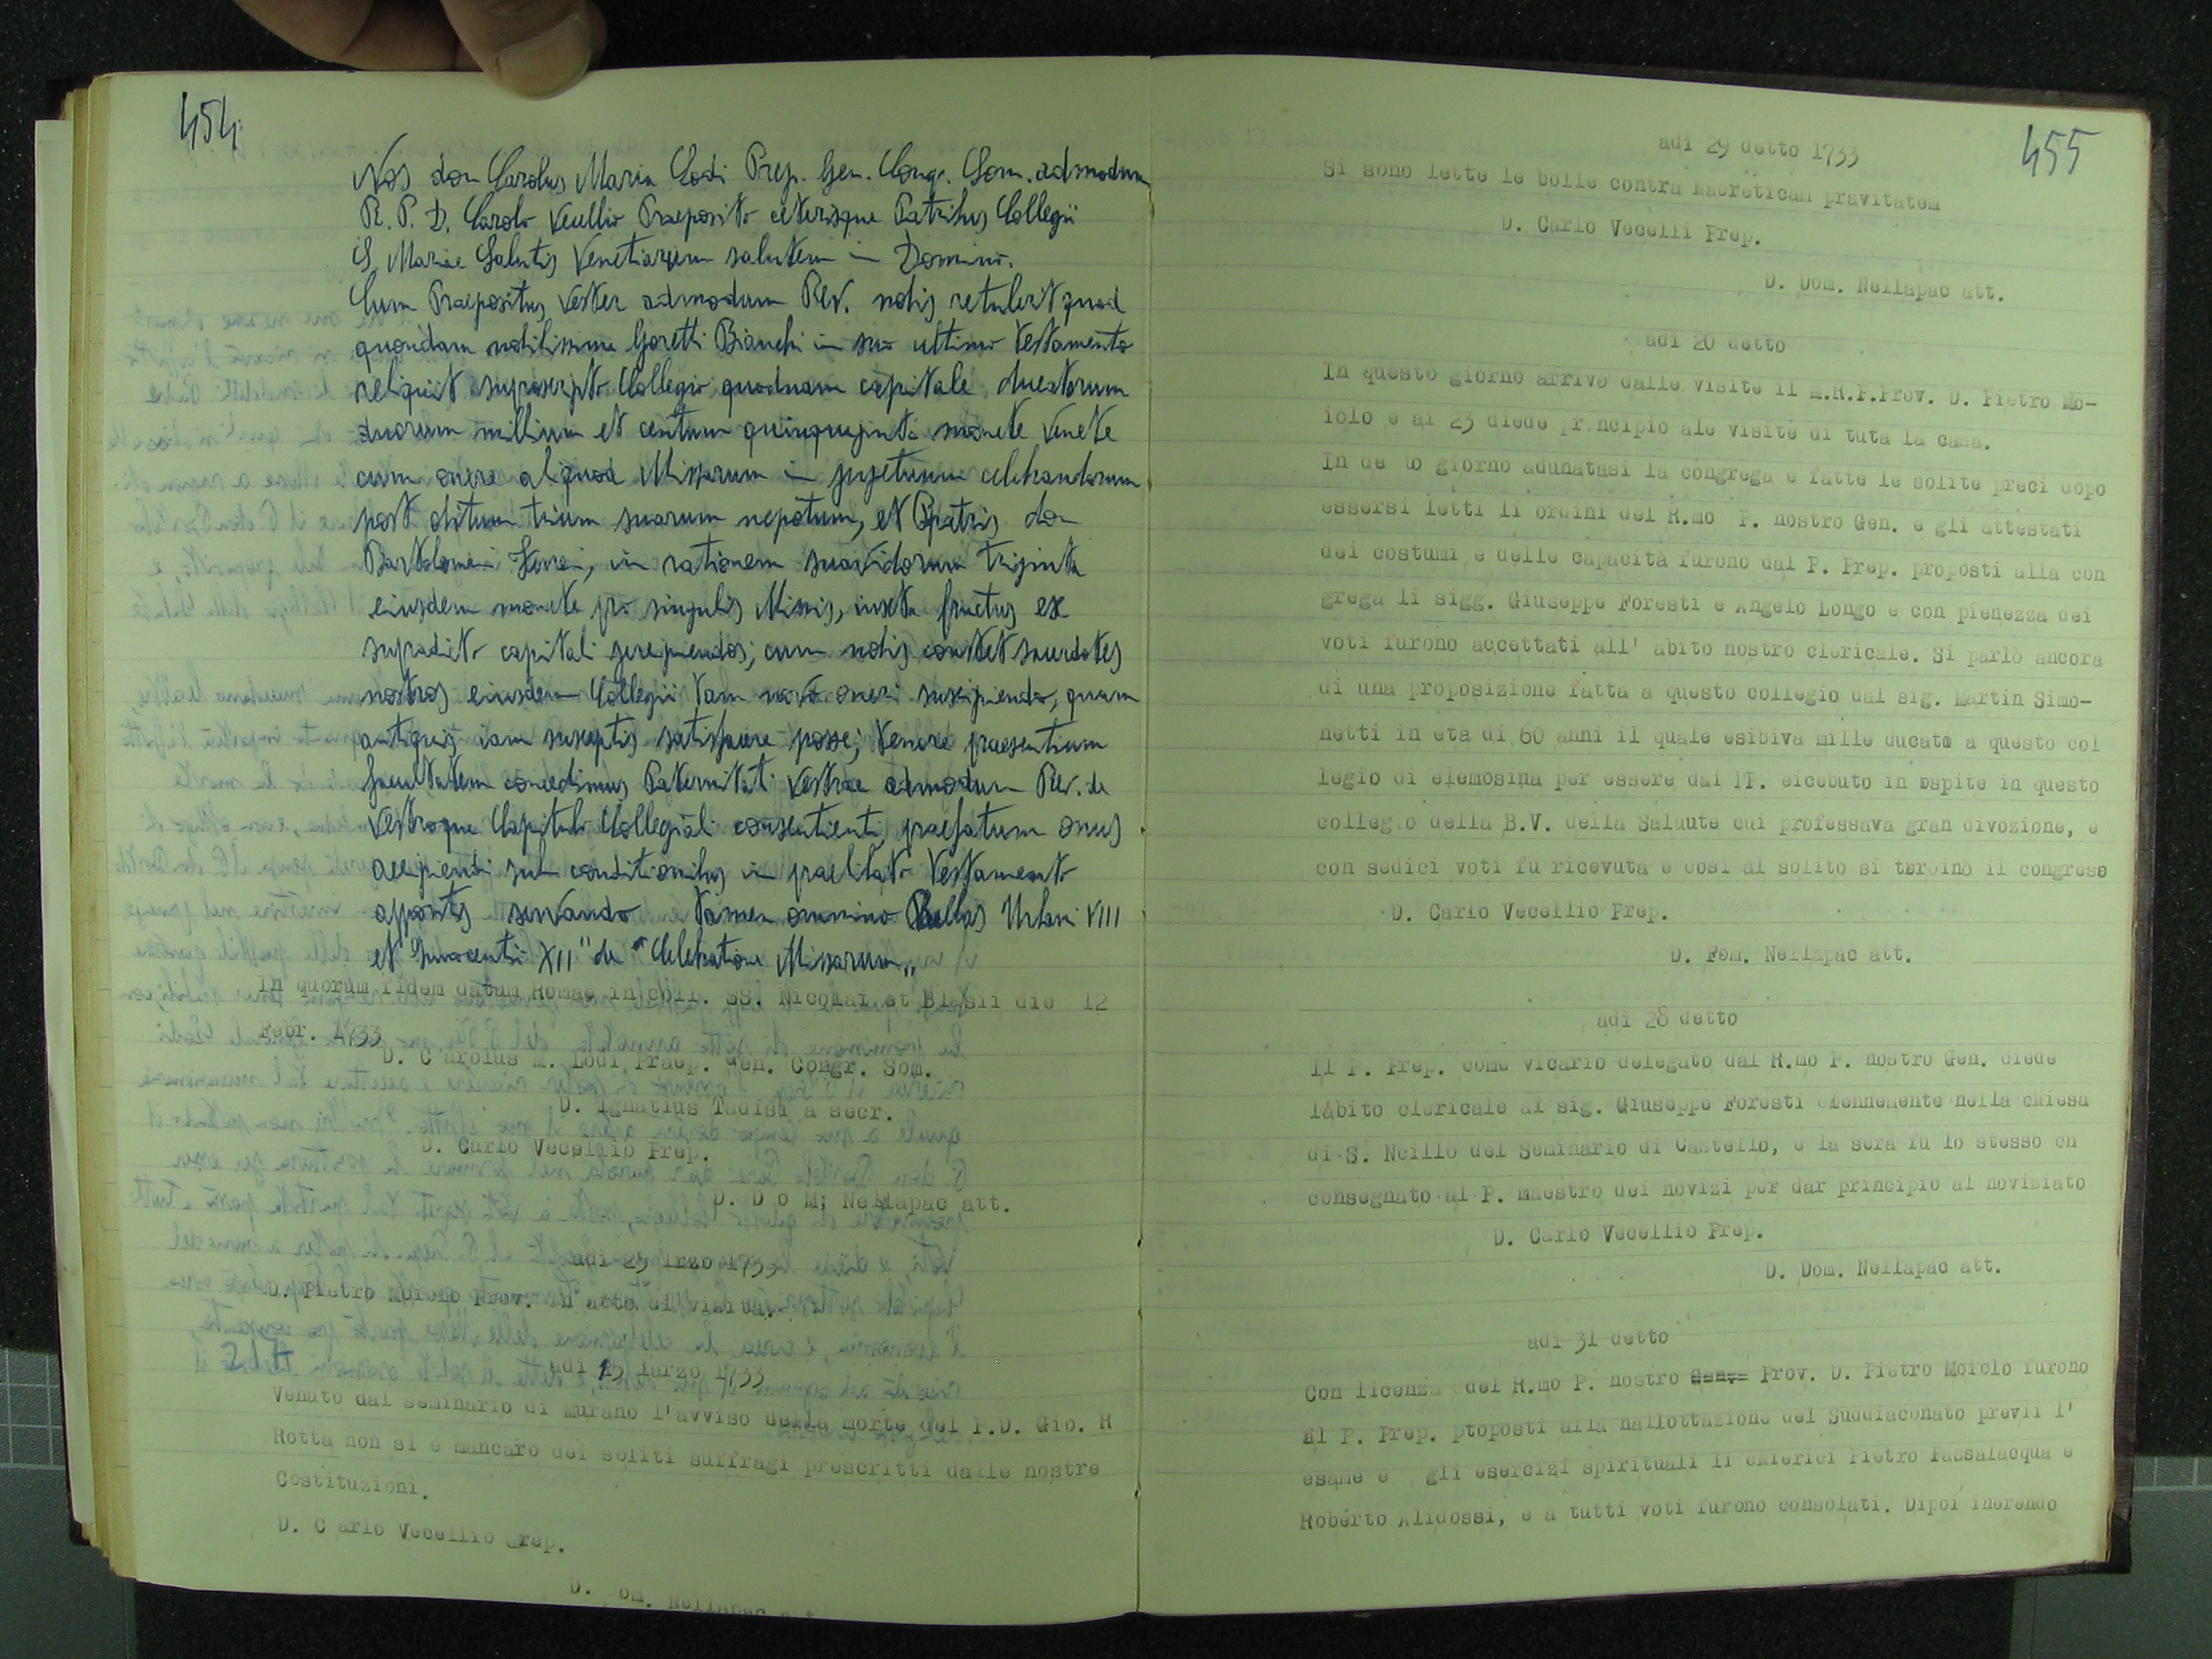 454
Nos don Carolus Maria Lodi Prep. Gen. Congr. Som. admodum
R. P. D. Carolo Vecellio Praeposito ceterisque Patribus Collegii
S. Mariae Salutis Venetiarum salutem in Domino.
Cum Praepositus Vester admodum Rev. nobis retulerit quod
quondam nobilissima Goretti Bianchi in suo ultimo Testamento
reliquit suprascripto Collegio quoddam capitale ducatorum
duorum millium et centum quinquaginta monete Venete
cum onere aliquod Missarum in perpetuum celebrandorum
post obitum trium suarum nepotum, et Patris don
Bartolomei, in rationem triginta
eiusdem monete pro singulis Missis, iuxta fructus ex
supradicto capitali percipiendos; cum nobis constet sacerdotes
nostros eiusdem Collegii tam novo oneri suscipiendo, quam
antiquis iam susceptis satisfacere posse; tenore praesentium
facultatem concedimus Paternitati Vestrae admodum Rev. de
Vestroque Capitulo Collegiali consentienti, praefatum onus
accipiendi sub conditionibus in praelibato Testamento
appositis servando tamen omnino Bullas Urbani VIII
et Innocentii XII "de "Celebratione Missarum„
In quorum fidem datum Romae in coll. SS. Nicolai et Blasii die 12
Febr. 1733
D. C arolus M. Lodi Praep. Gen. Congr. Som.
D. Ignatius Tadisi a secr.
D. Carlo Vecellio Prep.
D. D o M; Nellapac att.
adi 23 1733
D. Pietro Moiolo Prov. in atto di visita.
adi 15 Marzo 1733
Venuto dal seminario di Murano l'avviso della morte del P.D. Gio. B
Rotta non si è mancaro dei soliti suffragi prescritti dalle nostre
Costituzioni.
D. C arlo Vecellio Prep.
D. om. Nellapac a t
455
adi 29 detto 1733
Si sono lette le bolle contra haereticam pravitatem
D. Carlo Vecelli Prep.
D. Dom. Nellapac att.
adi 20 detto
In questo giorno arrivò dalle visite il M.R.P.Prov. D. Pietro Mo-
iolo e ai 23 diede pr ncipio ale visite di tuta la casa.
In de to giorno adunatasi la congrega e fatte le solite preci dopo
essersi letti li ordini del R.mo P. nostro Gen. e gli attestati
dei costumi e delle capacità furono dal P. Prep. proposti alla con
grega li sigg. Giuseppe Foresti e Angelo Longo e con pienezza dei
voti furono accettati all' abito nostro clericale. Si parlò ancora
di una proposizione fatta a questo collegio dal sig. Martin Simo-
netti in età di 60 anni il quale esibiva mille ducato a questo col
legio di elemosina per essere dai PP. eicebuto in ospite in questo
colleg o della B.V. della Saluute cui professava gran divozione, e
con sedici voti fu ricevuta e così al solito si terminò il congreso
D. Carlo Vecellio Prep.
D. Fom. Nellapac att.
adi 28 detto
Il P. Prep. come vicario delegato dal R.mo P. nostro Gen. diede
lábito clericale al sig. Giuseppe Foresti olennemente nella chiesa
di S. Ncillo del Seminario di Castello, e la sera fu lo stesso ch
consegnato al P. maestro dei novizi per dar principio al noviziato
D. Carlo Vecellio Prep.
D. Dom. Nellapac att.
adi 31 detto
Con licenza del R.mo P. nostro Gen. Prov. D. Pietro Moiolo furono
al P. Prep. ptoposti alla nallottazione del Suddiaconato previi l'
esame e gli esercizi spirituali li chierici Pietro Passalacqua e
Roberto Alidossi, e a tutti voti furono consolati. Dipoi inerendo